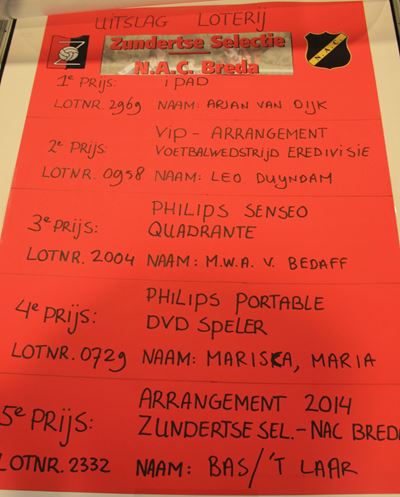 UITSLAG LOTERIJ
Zundertse Selectie
N.A.C. Breda
NAC
1e PRIJS: IPAD
LOTNR. 2969 NAAM: ARJAN VAN DIJK
VIP - ARRANGEMENT
2e PRIJS: VOETBALWEDSTRIJD EREDIVISIE
LOTNR. 0958 NAAM: LEO DUYNDAM
PHILIPS SENSEO
3e PRIJS: QUADRANTE
LOTNR. 2004 NAAM: M.W.A. V. BEDAFF
PHILIPS PORTABLE
4e PRIJS: DVD SPELER
LOTNR. 0729 NAAM: MARISKA, MARIA
ARRANGEMENT 2014
5e PRIJS: ZUNDERTSE SEL. - NAC BREDA
LOTNR. 2332 NAAM: BAS/'T LAAR